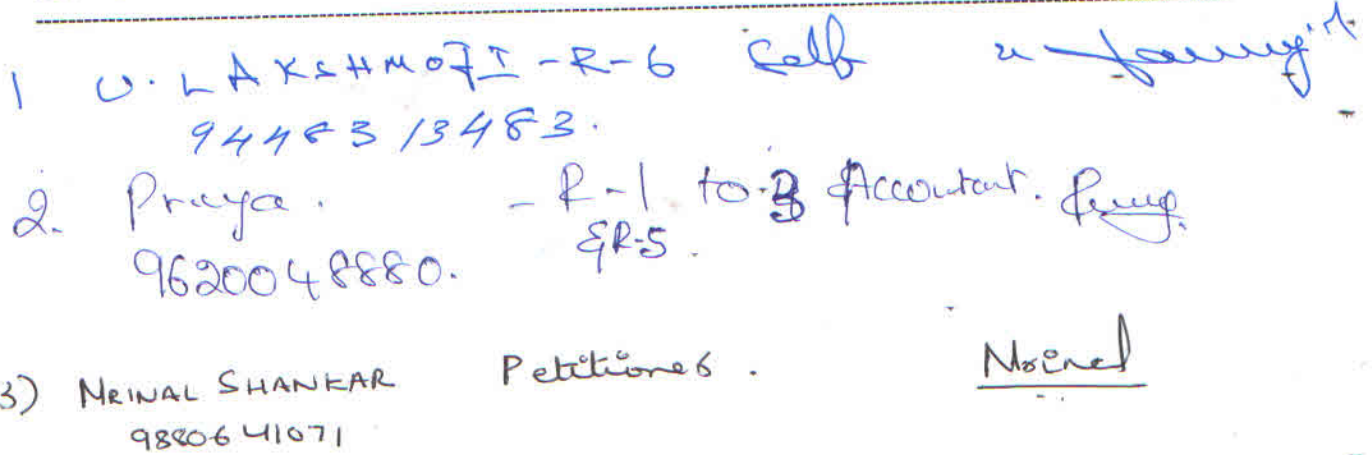 1 U. LAKSHMOJI - R-6 Self
9448313483.
2. Praya. - R-1 to 3 Accoutant.
9620048880. & R-5.
3) MRINAL SHANKAR Petitioner. Mrinal
9880641071